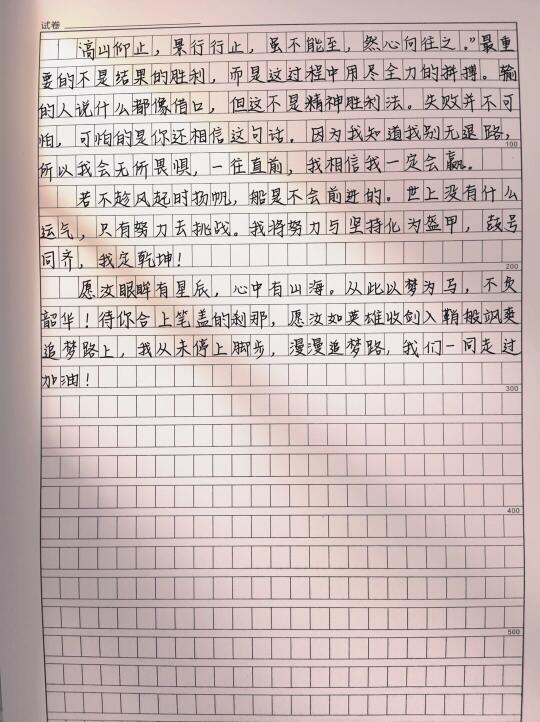 试卷
高山仰止，景行行止，虽不能至，然心向往之。”最重
要的不是结果的胜利，而是这过程中用尽全力的拼搏。输
的人说什么都像借口，但这不是精神胜利法。失败并不可
怕，可怕的是你还相信这句话。因为我知道我别无退路，
100
所以我会无所畏惧，一往直前，我相信我一定会赢。
若不趁风起时扬帆，船是不会前进的。世上没有什么
运气，只有努力去挑战。我将努力与坚持化为盔甲，鼓号
同齐，我定乾坤！
200
愿汝眼眸有星辰，心中有山海。从此以梦为马，不负
韶华！待你合上笔盖的刹那，愿汝如英雄收剑入鞘般飒爽
追梦路上，我从未停上脚步，漫漫追梦路，我们一同走过
加油！
300
400
500